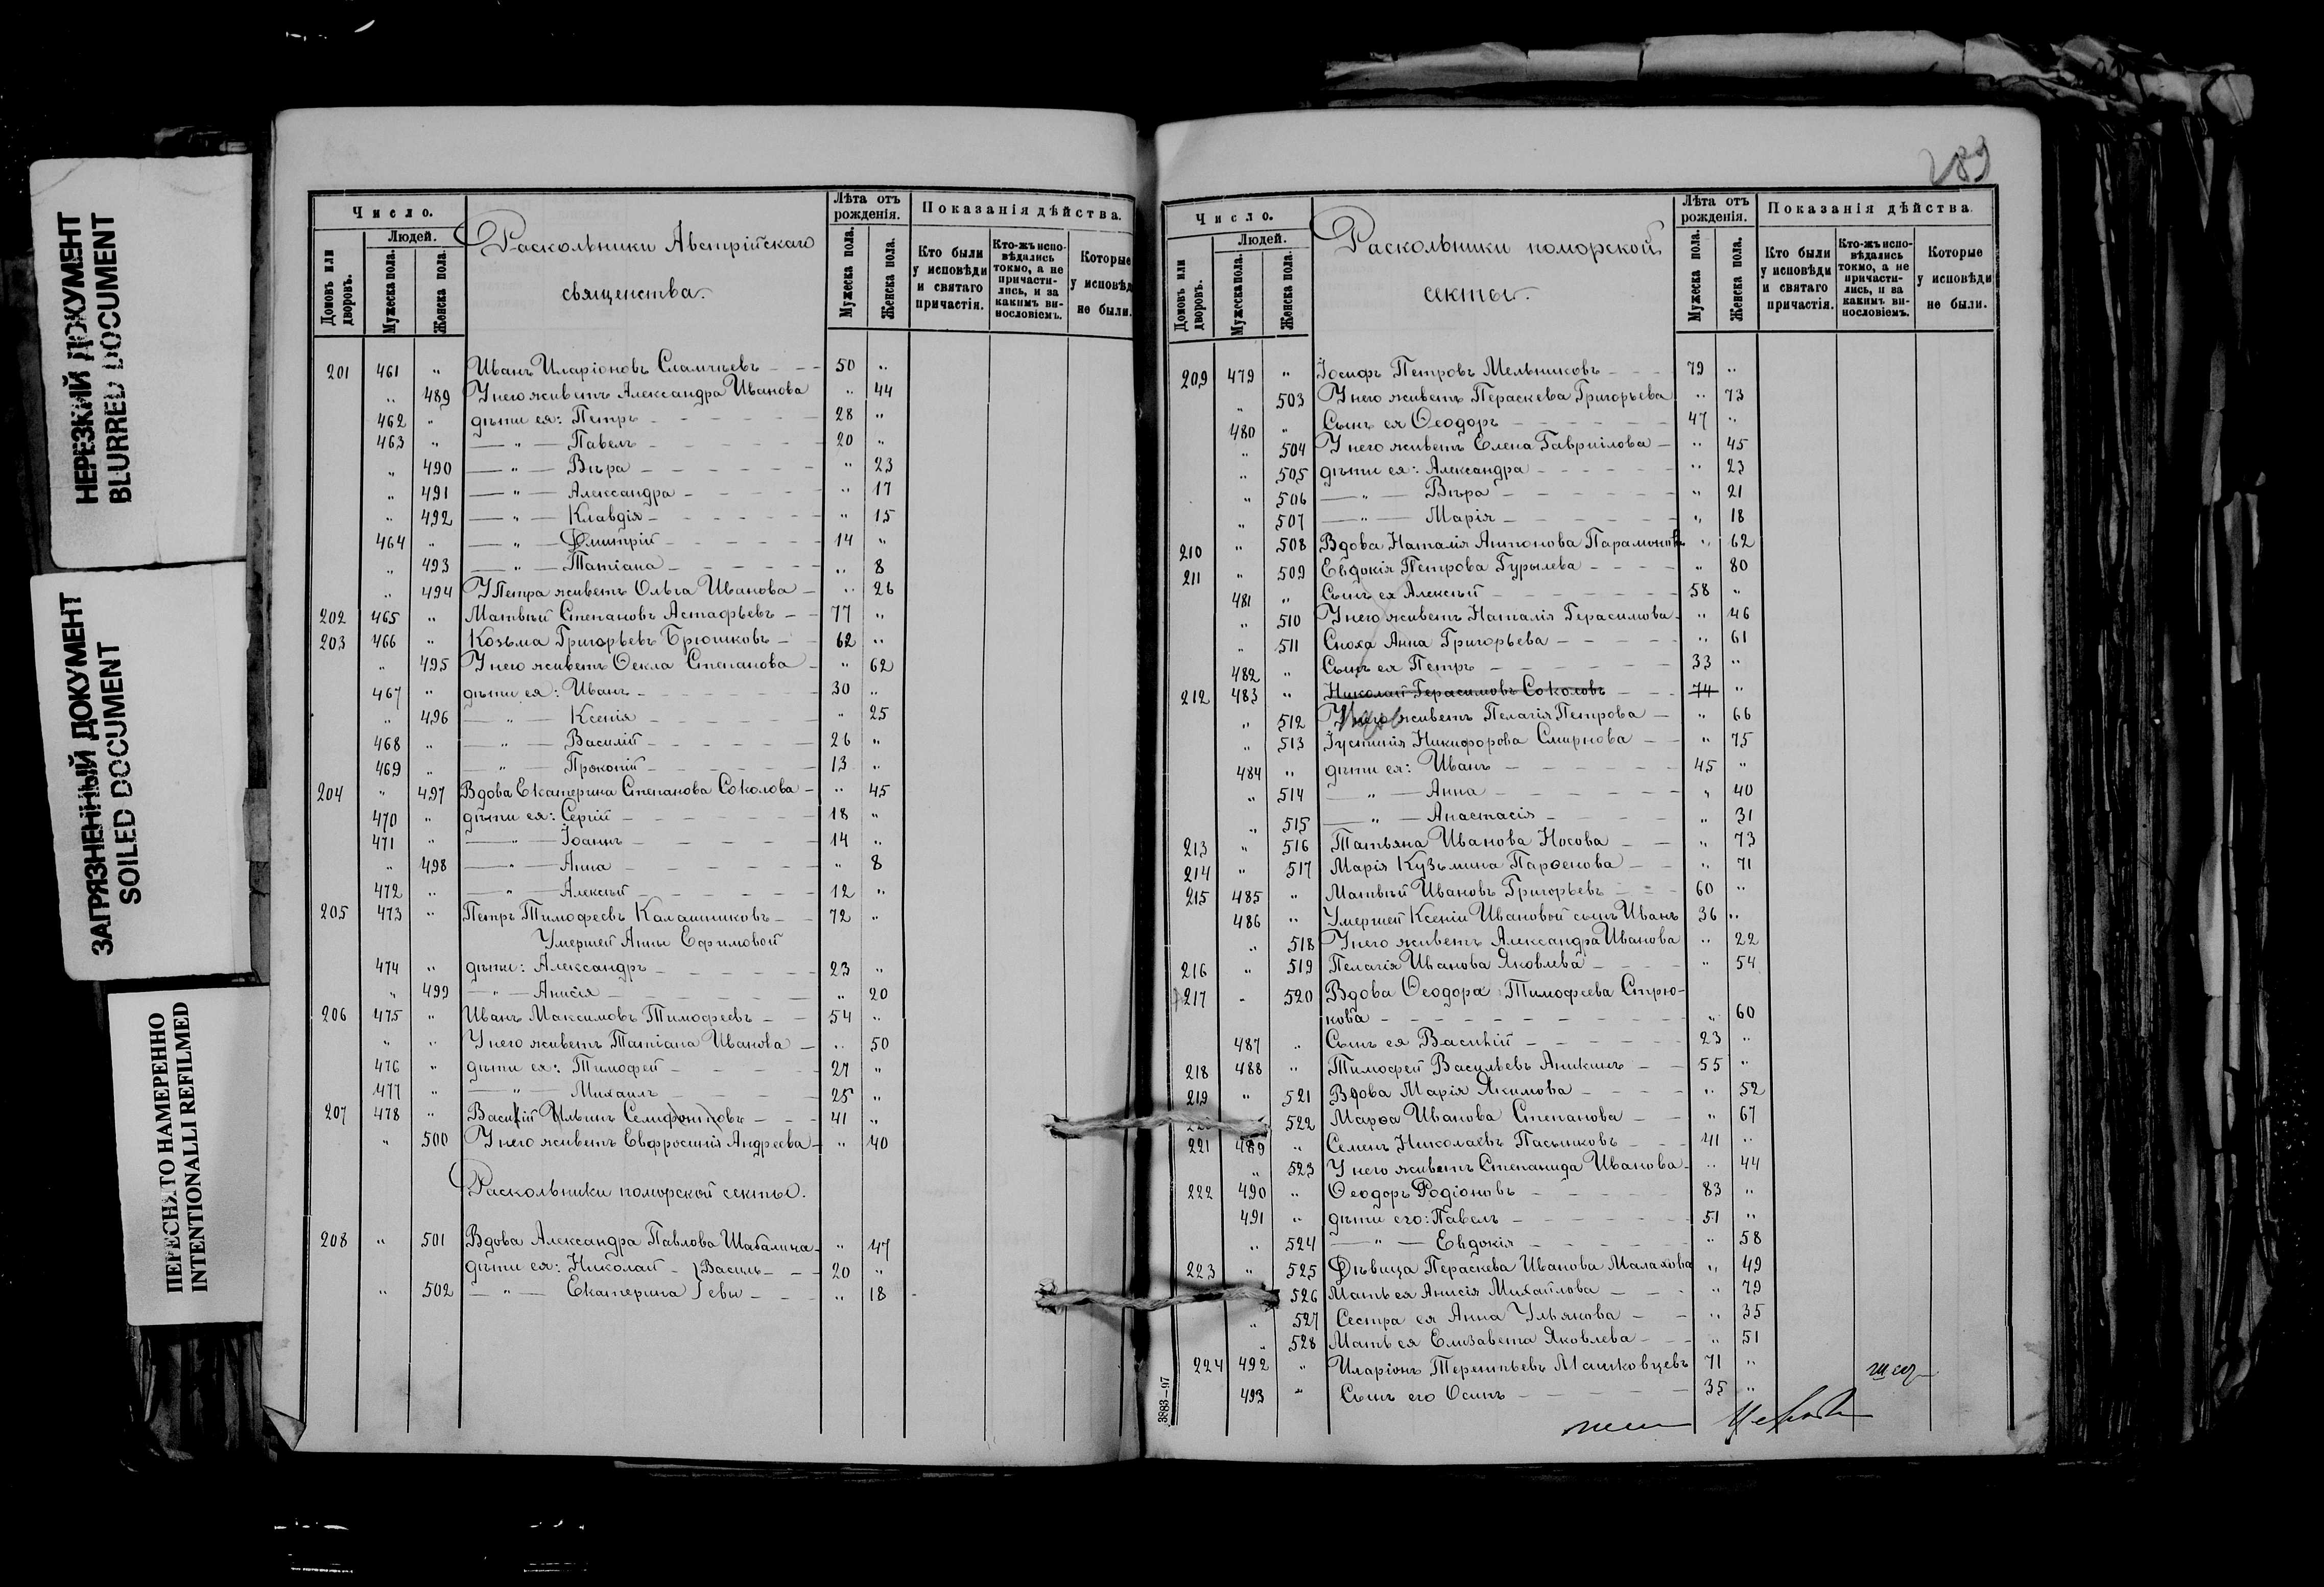 НЕРЕЗКИЙ ДОКУМЕНТ
BLURRED DOCUMENT
ЗАГРЯЗНЕННЫЙ ДОКУМЕНТ
SOILED DOCUMENT
ПЕРЕСНЯТО НАМЕРЕННО
INTENTIONALLI REFILMED
Число.
Домовъ или дворовъ.
Людей.
Мужеска пола.
Женска пола.
Раскольники Австрійскаго
священства.
Лѣта отъ рожденія.
Мужеска пола.
Женска пола.
Показанія дѣйства.
Кто были у исповѣди и святаго причастія.
Кто-жъ исповѣдались токмо, а не причастились, и за какимъ винословіемъ.
Которые у исповѣд не были.
201 461 " Иванъ Иларіоновъ 50 "
" 489 У него живетъ Александра Иванова " 44
462 " дѣти ея: Петръ 28 "
463 " — " — Павелъ 20 "
" 490 — " — Вѣра " 23
" 491 — " — Александра " 17
" 492 — " — Клавдія " 15
464 " — " — Дмитрій 14 "
" 493 — " — Татіана " 8
" 494 У Петра живетъ Ольга Иванова " 26
202 465 " Матвѣй Степановъ Астафьевъ 77 "
203 466 " Козьма Григорьевъ Брюшковъ 62 "
" 495 У него живетъ Ѳекла Степанова " 62
467 " дѣти ея: Иванъ 30 "
" 496 — " — Ксенія " 25
468 " — " — Василій 26 "
469 " — " — Прокопій 13 "
204 " 497 Вдова Екатерина Степанова Соколова " 45
470 " дѣти ея: Сергій 18 "
471 " — " — Іоаннъ 14 "
" 498 — " — Анна " 8
472 " — " — Алексѣй 12 "
205 473 " Петръ Тимофеевъ Калашниковъ 72 "
Умершей Анны Ефимовой
474 " дѣти: Александръ 23 "
" 499 — " — Анисія " 20
206 475 " Иванъ Максимовъ Тимофеевъ 54 "
" " У него живетъ Татіана Иванова " 50
476 " дѣти ея: Тимофей 27 "
477 " — " — Михаилъ 25 "
207 478 " Василій Ильинъ 41 "
" 500 У него живетъ Евфросинія Андреева " 40
Раскольники поморской секты.
208 " 501 Вдова Александра Павлова Шабалина " 47
дѣти ея: Николай } Василь- 20 "
" 502 — " — Екатерина } евы " 18
289
Число.
Домовъ или дворовъ.
Людей.
Мужеска пола.
Женска пола.
Раскольники поморской
секты.
Лѣта отъ рожденія.
Мужеска пола.
Женска пола.
Показанія дѣйства.
Кто были у исповѣди и святаго причастія.
Кто-жъ исповѣдались токмо, а не причастились, и за какимъ винословіемъ.
Которые у исповѣди не были.
209 479 " Іосифъ Петровъ Мельниковъ 79 "
" 503 У него живетъ Пераскева Григорьева " 73
480 " Сынъ ея Ѳеодоръ 47 "
" 504 У него живетъ Елена Гавриілова " 45
" 505 дѣти ея: Александра " 23
" 506 — " — Вѣра " 21
" 507 — " — Марія " 18
210 " 508 Вдова Наталія Антонова Парамонова " 62
211 " 509 Евдокія Петрова Гурылева " 80
481 " Сынъ ея Алексѣй 58 "
" 510 У него живетъ Наталія Герасимова " 46
" 511 Сноха Анна Григорьева " 61
482 " Сынъ ея Петръ 33 "
212 483 " Николай Герасимовъ Соколовъ 74 "
" 512 У него живетъ Пелагія Петрова " 66
" 513 Іустинія Никифорова Смирнова " 75
484 " дѣти ея: Иванъ 45 "
" 514 — " — Анна " 40
" 515 — " — Анастасія " 31
213 " 516 Татьяна Иванова Носова " 73
214 " 517 Марія Кузьмина Парѳенова " 71
215 485 " Матвѣй Ивановъ Григорьевъ 60 "
486 " Умершей Ксеніи Ивановой сынъ Иванъ 36 "
" 518 У него живетъ Александра Иванова " 22
216 " 519 Пелагія Иванова Яковлева " 54
217 " 520 Вдова Ѳеодора Тимофеева Стрю-
кова " 60
487 " Сынъ ея Василій 23 "
218 488 " Тимофей Васильевъ Аникинъ 55 "
219 " 521 Вдова Марія Якимова " 52
" 522 Марѳа Иванова Степанова " 67
221 489 " Семенъ Николаевъ Пасынковъ 41 "
" 523 У него живетъ Степанида Иванова " 44
222 490 " Ѳеодоръ Родіоновъ 83 "
491 " дѣти его: Павелъ 51 "
" 524 — " — Евдокія " 58
223 " 525 Дѣвица Пераскева Иванова Малахова " 49
526 Мать ея Анисія Михайлова " 79
" 527 Сестра ея Анна Ульянова " 35
" 528 Мать ея Елизавета Яковлева " 51
224 492 " Иларіонъ Терентьевъ Машковцевъ 71 "
493 " Сынъ его Осипъ 35 "
3883—97